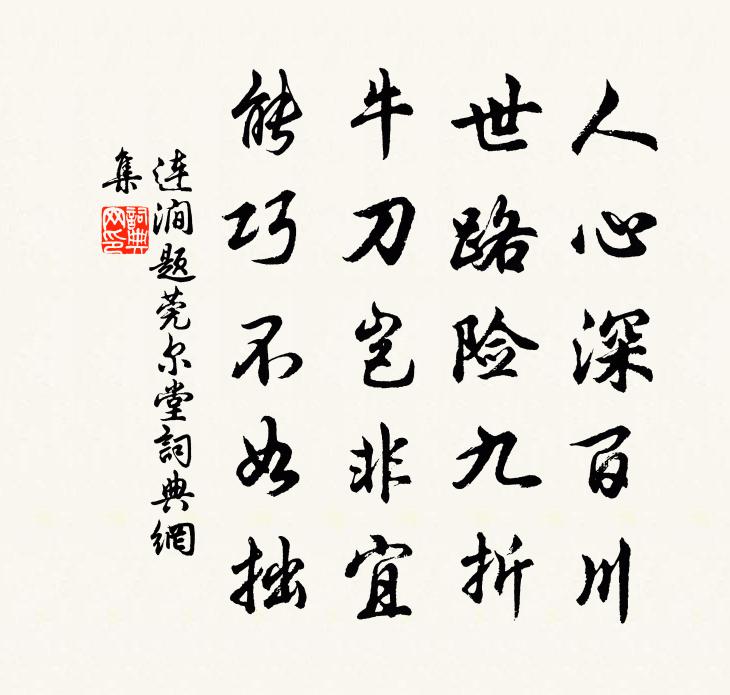 人心深百川
世路险九折
牛刀岂非宜
能巧不如拙
连涧题莞尔堂詞典網
集
詞典
网印